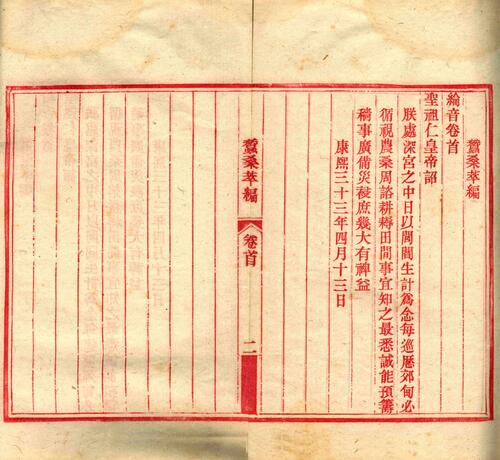 蠶桑萃編
綸音卷首
聖祖仁皇帝詔
朕處深宮之中日以閭閻生計爲念每巡歷郊甸必
循視農桑周諮耕耨田間事宜知之最悉誠能預籌
穡事廣備災祲庶幾大有裨益
康熙三十三年四月十三日
蠶桑萃編
卷首
二